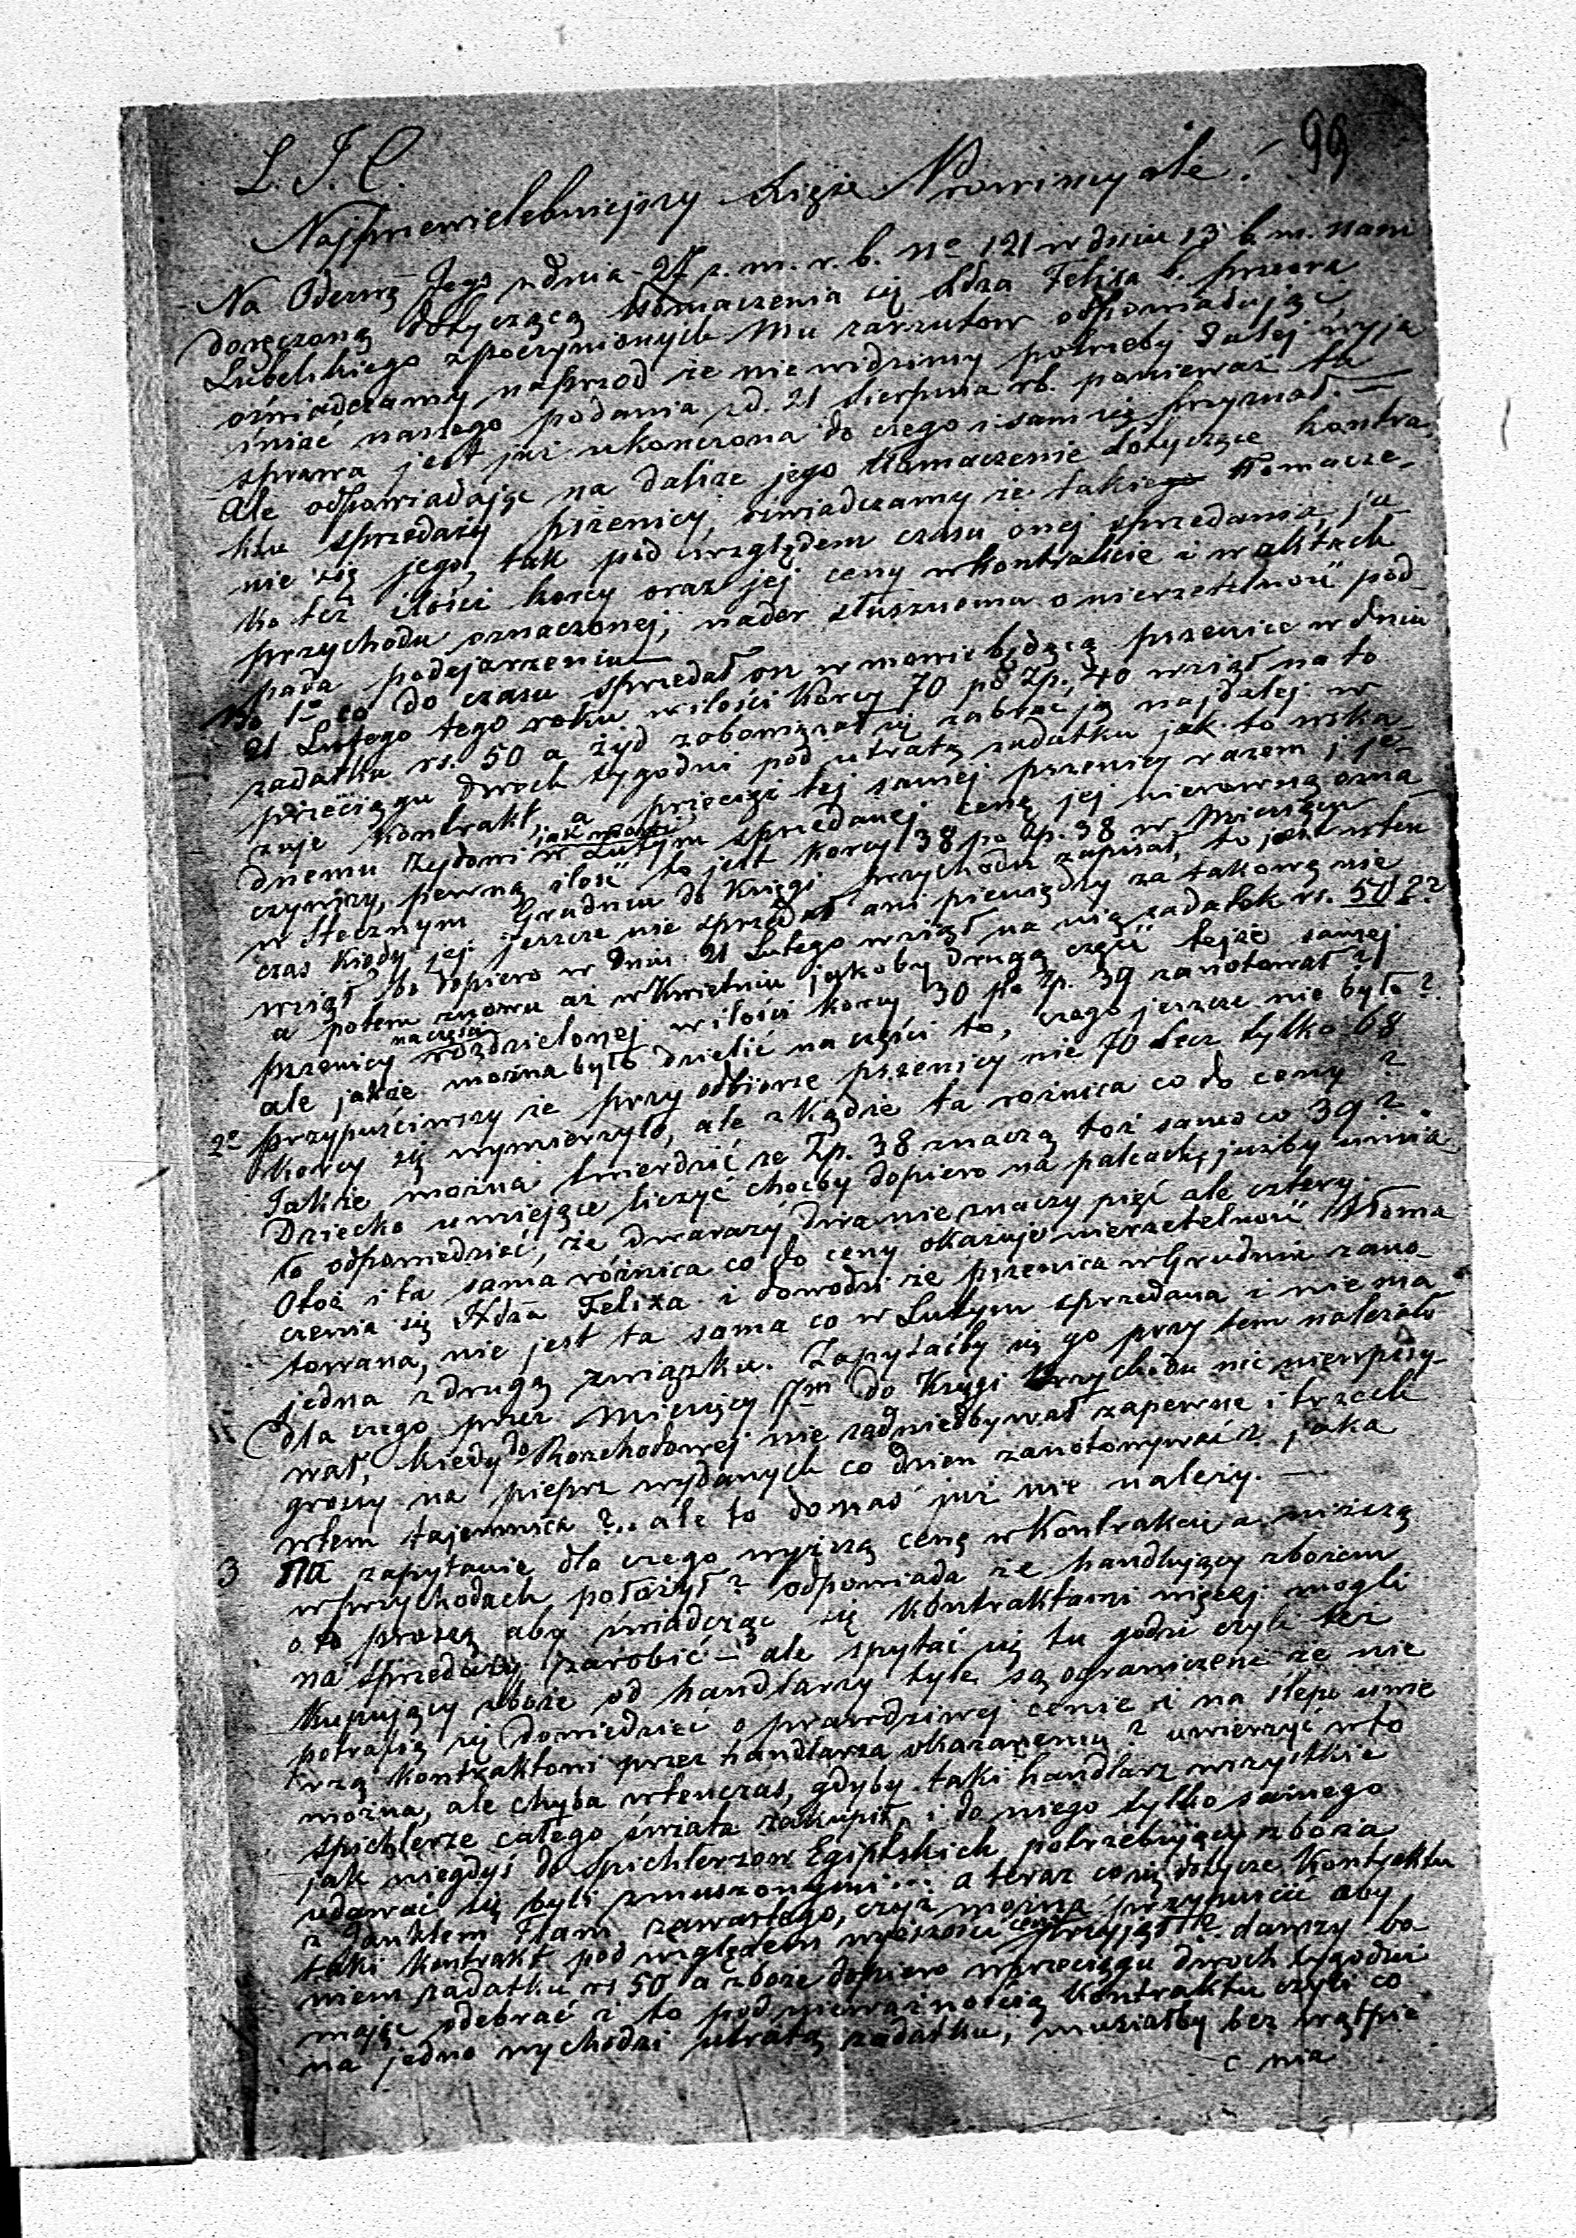 99
L. J. C.
Najprzewielebniejszy Xięże Prowincyale!
Na Odezwę Jego z dnia 27 z. m. r. b. No 121 w dniu 13 b. m. nam
doręczoną dotyczącą tłomaczenia się Xdza Felixa b. przeora
Lubelskiego z poczynionych Mu zarzutow odpowiadając
oświadczamy naprzod że niewidzimy potrzeby dalej wyja
śniać naszego podania z d. 21 Sierpnia rb. ponieważ ta
sprawa jest już ukonczona do czego i sam się przyznał. —
Ale odpowiadając na dalsze jego tłomaczenie dotyczące kontra,
ktu sprzedaży pszenicy, oświadczamy że takie tłomacze,
nie się jego, tak pod względem czasu onej sprzedania, ja
ko też ilości korcy oraz jej ceny w kontrakcie i w aktach
przychodu oznaczonej, nader słusznemu o nierzetelność pod
pada podejrzeniu —
Bo 1o co do czasu sprzedał on w mowie będącą pszenice w dniu
21 Lutego tego roku w ilości Korcy 70 po Zp. 40 wziął na to
zadatku rs. 50 a żyd zobowiązał się zabrać ją najdalej w
przeciągu dwoch tygodni pod utratą zadatku jak to wska
zuje kontrakt, a przecież tej samej pszenicy razem i je-
dnemu żydowi w Lutym sprzedanej cenę jej nierowną ozna
czywszy, pewną ilość to jest korcy 38 po Zp. 38 w Miesiącu
wstecznym Grudniu do Księgi przychodu zapisał, to jest wten
czas kiedy jej jeszcze nie sprzedał ani pieniędzy za takową nie
wziął, bo dopiero w dniu 21 Lutego wziął na nią zadatek rs. 50??
a potem znowu aż w Kwietniu jakoby drugą część tejże samej
pszenicy na części rozdzielonej w ilości korcy 30 po Zp. 39 zanotował?
ale jakże można było dzielić na części to, czego jeszcze nie było?
2o przypuściwszy że przy odbiorze pszenicy nie 70 lecz tylko 68
korcy się wymierzyło, ale zkądże ta rożnica co do ceny?
Jakże można twierdzić że Zp. 38 znaczą toż samo co 39?
Dziecko umiejące liczyć choćby dopiero na palcach, jużby umia
ło odpowiedzieć, że dwarazy dwa nie znaczy pięć ale cztery.
Otoż i ta sama różnica co do ceny okazuje nierzetelność tłoma
czenia się Xdza Felixa i dowodzi że pszenica w Grudniu zano-
towana, nie jest ta sama co w Lutym sprzedana i nie ma
jedna z drugą związku. Zapytaćby się go przy tem należało
dla czego przez Miesięcy 7m do Księgi Przychodu nic niewpisy-
wał, kiedy do Rozchodowej nie zaniedbywał zapewne i trzech
groszy na pieprz wydanych co dzien zanotowywać? jaka
w tem tajemnica?.. ale to do nas już nie należy. —
3 Na zapytanie dla czego wyższą cenę w Kontrakcie a niższą
w przychodach położył? odpowiada że handlujący zbożem
o to proszą aby świadcząc się kontraktami więcej mogli
na sprzedaży zarobić — ale spytać się tu godzi czyli też
Kupujący zboże od handlarzy tyle są ograniczeni że nie
potrafią się dowiedzieć o prawdziwej cenie i na ślepo uwie
rzą kontraktowi przez handlarza okazanemu? uwierzyć w to
można, ale chyba wtenczas, gdyby taki handlarz wszystkie
spichlerze całego świata zakupił, i do niego tylko samego
jak niegdyś do Spichlerzow Egipskich potrzebujący zboża
udawać się byli zmuszonymi... a teraz co się dotycze Kontraktu
z Janklem Flam zawartego, czyż można przypuścić aby
taki kontrakt pod względem wyższości ceny przyjął? dawszy bo-
wiem zadatku rs 50 a zboże dopiero w przeciągu dwoch tygodni
mając odebrać i to pod nieważnością Kontraktu czyli co
na jedno wychodzi utratą zadatku, musiałby bez wątpie
nia